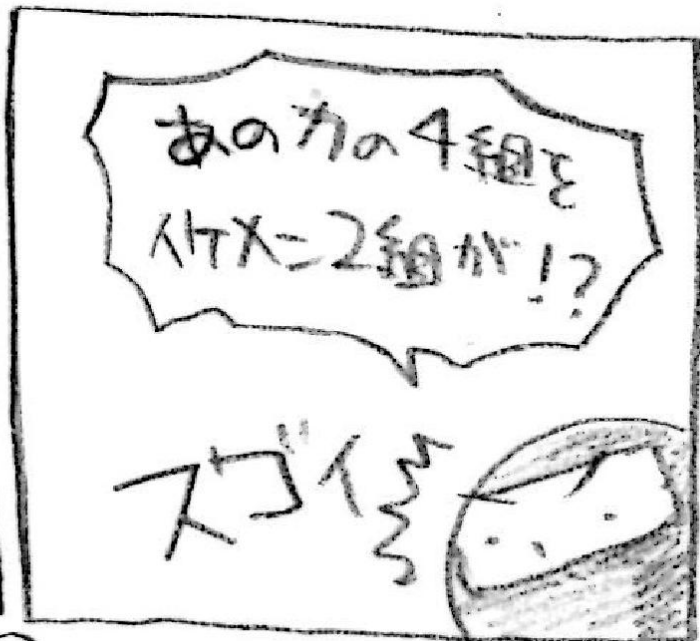 あの力の4組を
イケメン2組が!?
スゴイ